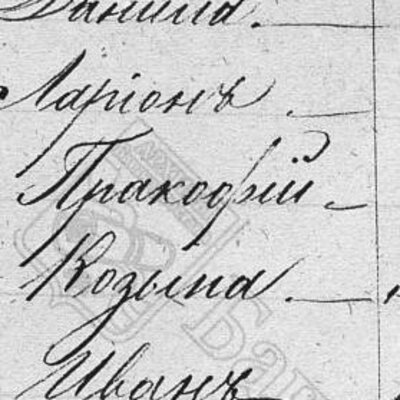 Данила.
Ларіонъ.
Пракофій
Козьма.
Иванъ